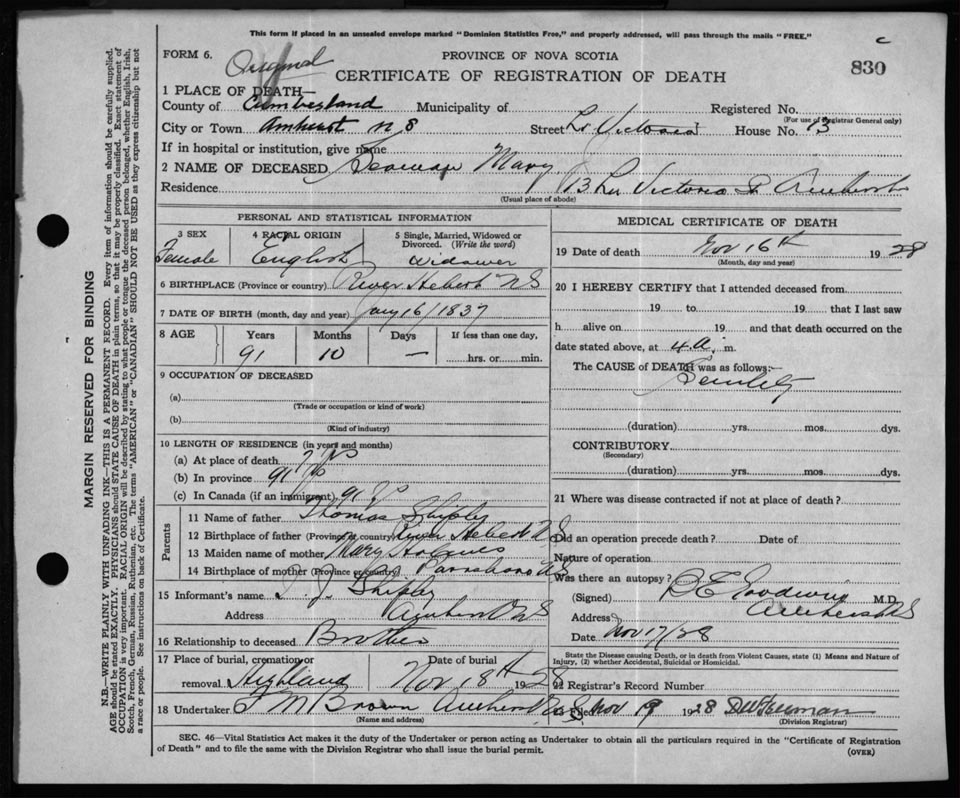 This form if enclosed in an unsealed envelope marked "Dominion Statistics Free," and properly addressed, will pass through the mails "FREE."
c
FORM 6.
Original
PROVINCE OF NOVA SCOTIA
CERTIFICATE OF REGISTRATION OF DEATH
830
1 PLACE OF DEATH—
County of Cumberland Municipality of Registered No.
(For use of Registrar General only)
City or Town Amherst N S Street Lr Victoria House No. 13
If in hospital or institution, give name
2 NAME OF DECEASED Seaman Mary
Residence 13 Lr Victoria St Amherst
(Usual place of abode)
PERSONAL AND STATISTICAL INFORMATION
3 SEX 4 RACIAL ORIGIN 5 Single, Married, Widowed or Divorced. (Write the word)
Female English Widower
6 BIRTHPLACE (Province or country) River Hebert NS
7 DATE OF BIRTH (month, day and year) Jany 16/1837
8 AGE Years Months Days If less than one day,
91 10 — hrs. or min.
9 OCCUPATION OF DECEASED
(a)
(Trade or occupation or kind of work)
(b)
(Kind of industry)
10 LENGTH OF RESIDENCE (in years and months)
(a) At place of death
(b) In province 91
(c) In Canada (if an immigrant) 91
Parents
11 Name of father Thomas Shipley
12 Birthplace of father (Province or country) River Hebert NS
13 Maiden name of mother Mary
14 Birthplace of mother (Province or country) Parrsboro NS
15 Informant's name Shipley
Address Amherst NS
16 Relationship to deceased Brother
17 Place of burial, cremation or removal Highland Date of burial Nov 18th 1928
18 Undertaker F M Brown Amherst N.S.
(Name and address)
MEDICAL CERTIFICATE OF DEATH
19 Date of death Nov 16th 1928
(Month, day and year)
20 I HEREBY CERTIFY that I attended deceased from
19 to 19 that I last saw
h alive on 19 and that death occurred on the
date stated above, at 4 a. m.
The CAUSE of DEATH was as follows:—
Senility
(duration) yrs. mos. dys.
CONTRIBUTORY
(Secondary)
(duration) yrs. mos. dys.
21 Where was disease contracted if not at place of death?
Did an operation precede death? Date of
Nature of operation
Was there an autopsy?
(Signed) Goodwin M.D.
Address Amherst NS
Date Nov 17/28
State the Disease causing Death, or in death from Violent Causes, state (1) Means and Nature of Injury, (2) whether Accidental, Suicidal or Homicidal.
22 Registrar's Record Number
Nov 19 1928
(Division Registrar)
SEC. 46—Vital Statistics Act makes it the duty of the Undertaker or person acting as Undertaker to obtain all the particulars required in the "Certificate of Registration
of Death" and to file the same with the Division Registrar who shall issue the burial permit.
(OVER)
MARGIN RESERVED FOR BINDING
N.B.—WRITE PLAINLY WITH UNFADING INK—THIS IS A PERMANENT RECORD. Every item of information should be carefully supplied.
AGE should be stated EXACTLY. PHYSICIANS should STATE CAUSE OF DEATH in plain terms, so that it may be properly classified. Exact statement of
OCCUPATION is very important. RACIAL ORIGIN will be described by stating to what people or tongue the deceased person belonged, whether English, Irish,
Scotch, French, German, Russian, Ruthenian, etc. The terms "AMERICAN" or "CANADIAN" SHOULD NOT BE USED as they express citizenship but not
a race or people. See instructions on back of Certificate.